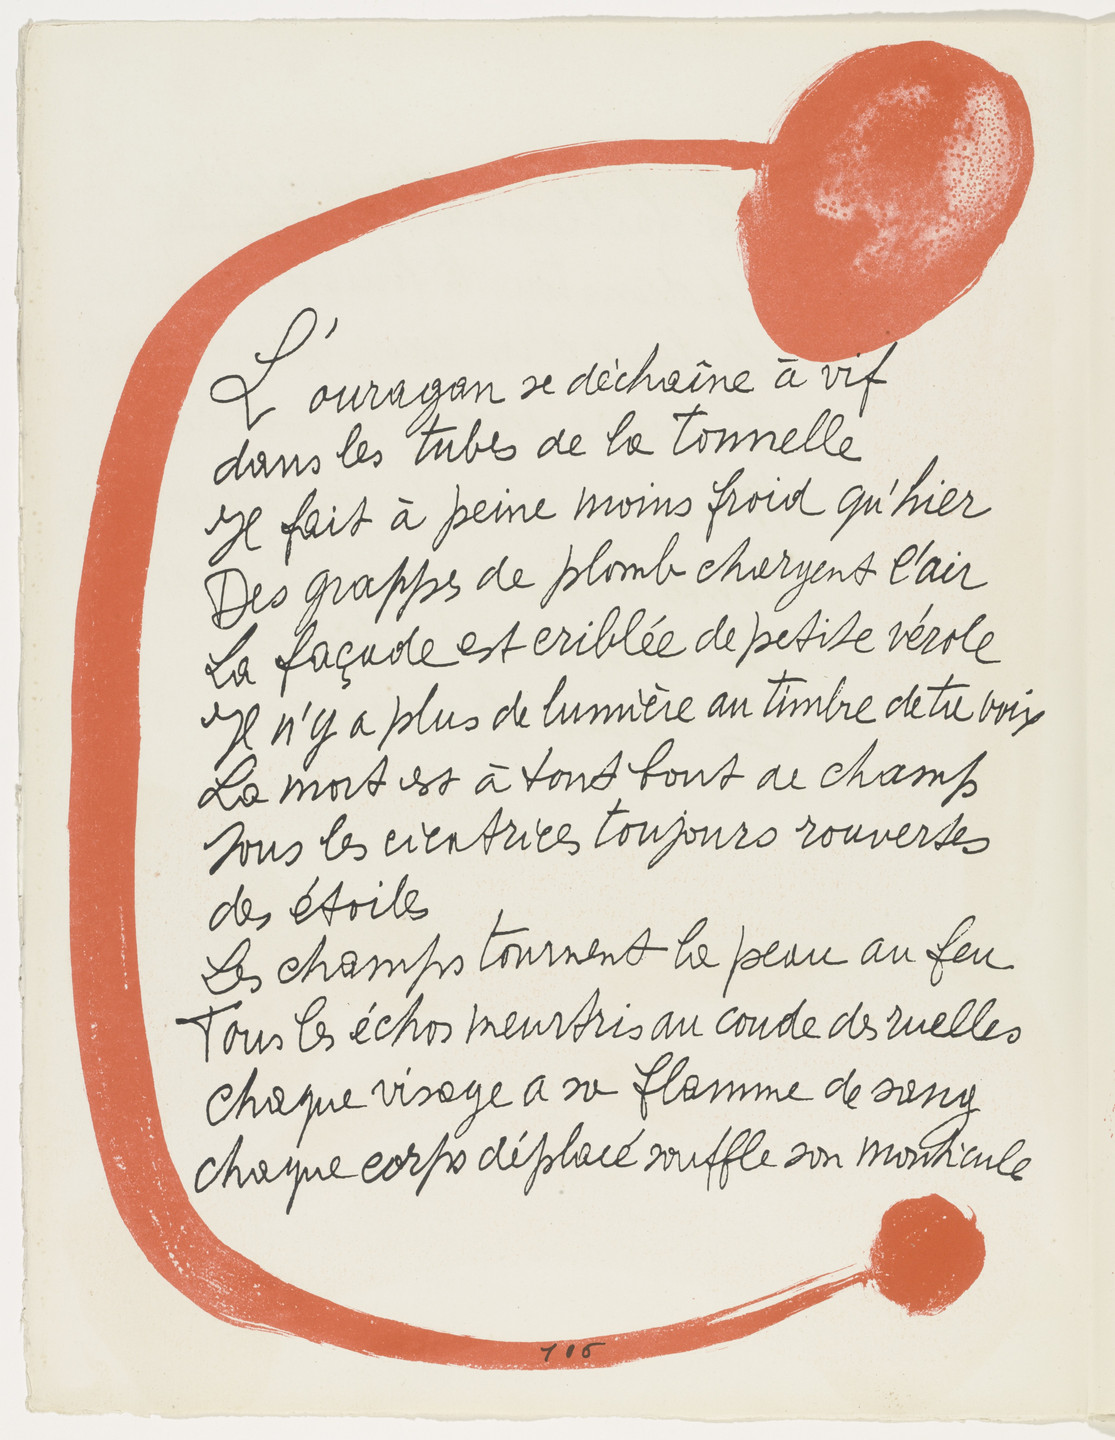 L'ouragan se déchaîne à vif
dans les tubes de la tonnelle
Il fait à peine moins froid qu'hier
Des grappes de plomb chargent l'air
La façade est criblée de petite vérole
Il n'y a plus de lumière au timbre de ta voix
La mort est à tout bout de champ
Sous les cicatrices toujours rouvertes
des étoiles
Les champs tournent la peau au feu
Tous les échos meurtris au coude des ruelles
Chaque visage a sa flamme de sang
Chaque corps déplacé souffle son monticule
106